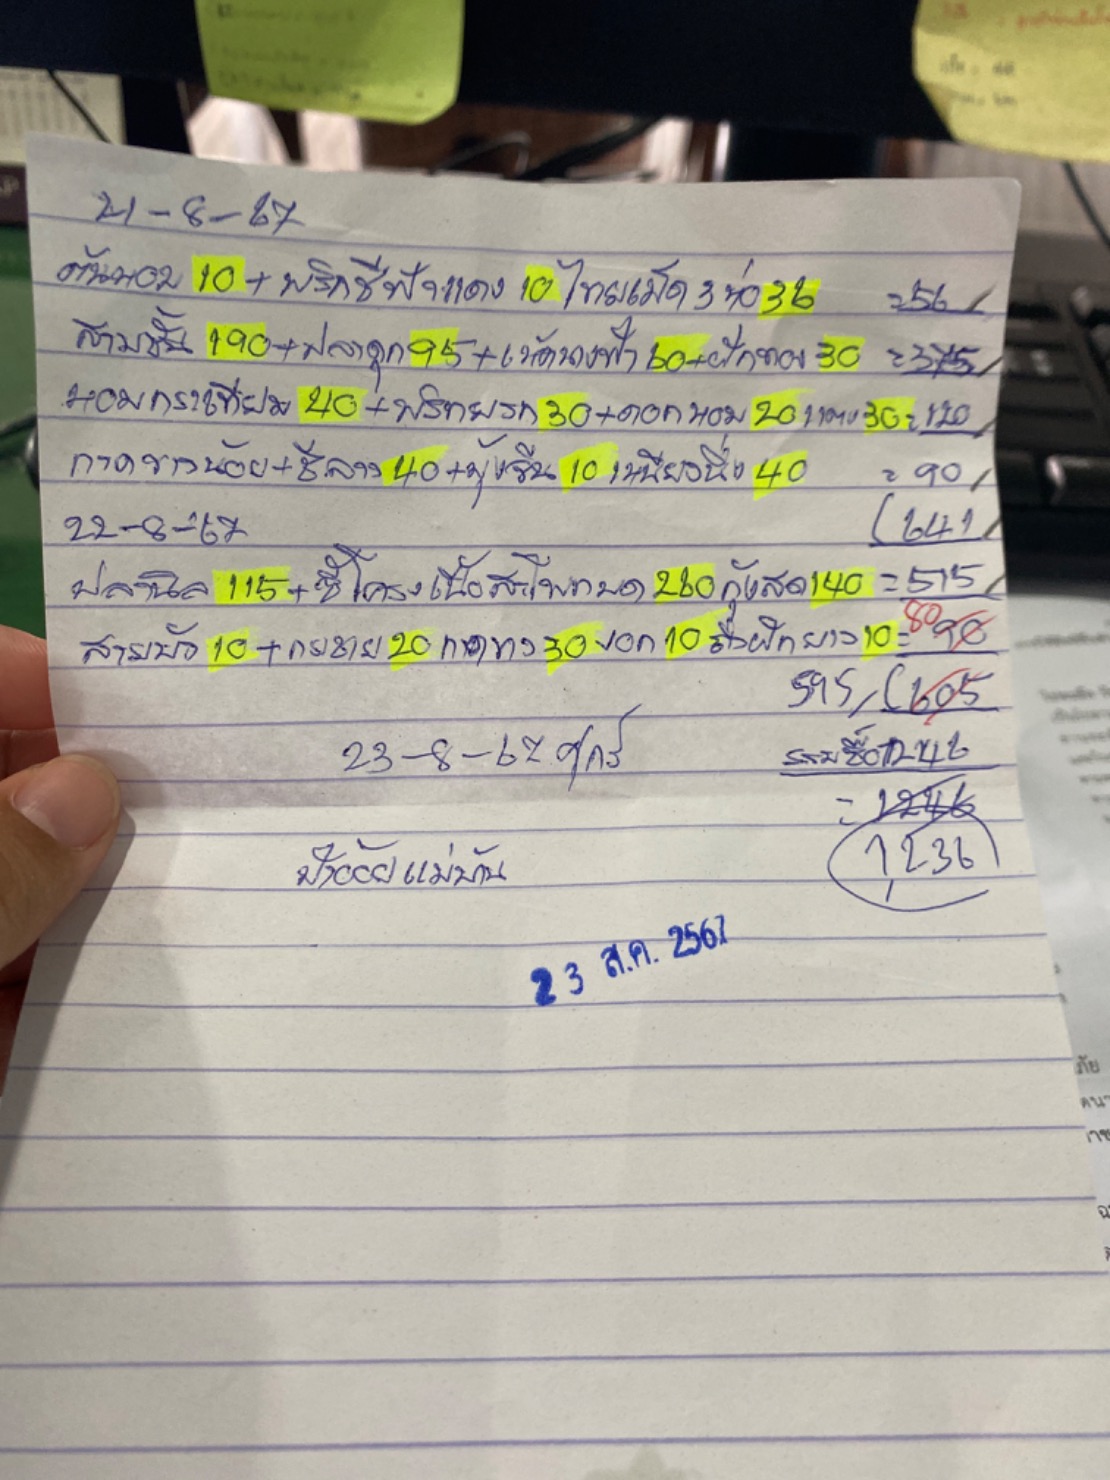 21-8-67
ต้นหอม 10 + พริกชี้ฟ้าแดง 10 ไทยเม็ด 3 ห่อ 36 =56
สามชั้น 190+ปลาดุก 95+เห็ดนางฟ้า 60+ฟักทอง 30 =375
หอมกระเทียม 40+พริกหยวก 30+ดอกหอม 20 แตง 30=120
กาดขาวน้อย+ชีลาว 40+ผุ้งจีน 10 เหนียวนึ่ง 40 =90
(641
22-8-67
ปลานิล 115+ซี่โครงเนื้อสะโพกบด 260 กุ้งสด 140=515
สายบัว 10 + กุยช่าย 20 กาดกวา 30 งอก 10 ถั่วฝักยาว 10= 90 80
595 (605
23-8-67 ศุกร์
รวมซื้อ 1246
=1246
1,236
ป้าอ้อย แม่บ้าน
23 ส.ค. 2567